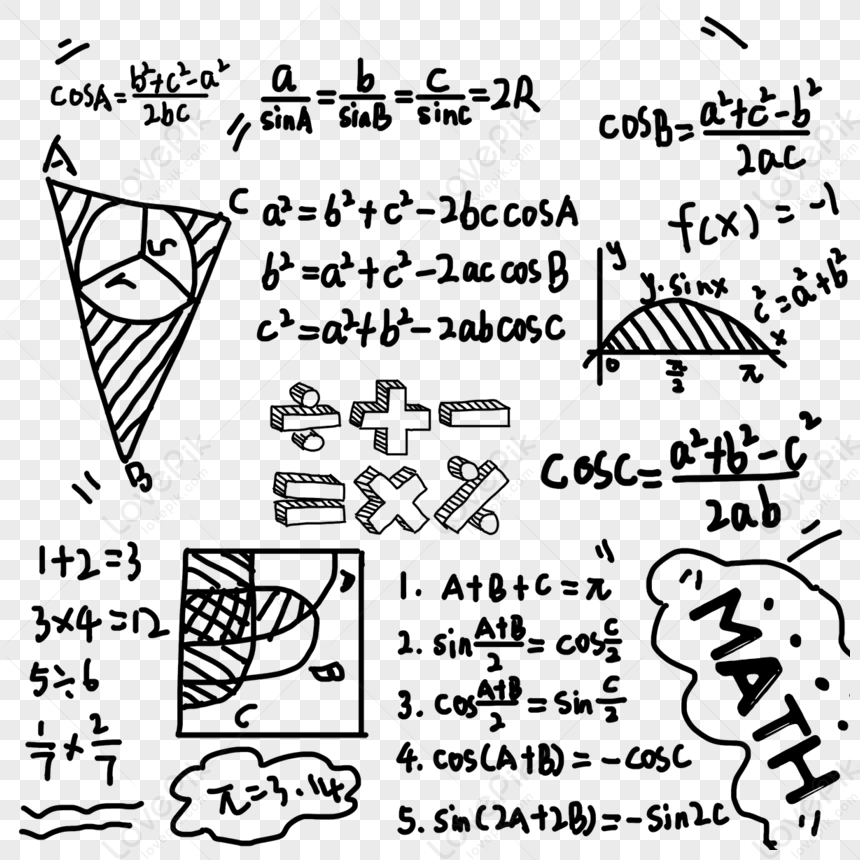 cosA = (b²+c²-a²)/2bc
a/sinA = b/sinB = c/sinc = 2R
cosB = (a²+c²-b²)/2ac
A
C
B
r
a² = b²+c²-2bccosA
b² = a²+c²-2accosB
c² = a²+b²-2abcosC
f(x) = -1
y
y·sinx
c² = a²+b²
x
0
π/2
π
÷ + -
= × %
cosC = (a²+b²-c²)/2ab
1+2=3
3×4=12
5÷6
1/7 × 2/7
C
π=3.14
1. A+B+C=π
2. sin (A+B)/2 = cos C/2
3. cos (A+B)/2 = sin C/2
4. cos(A+B) = -cosC
5. sin(2A+2B) = -sin2C
MATH
LovePik
lovepik.com